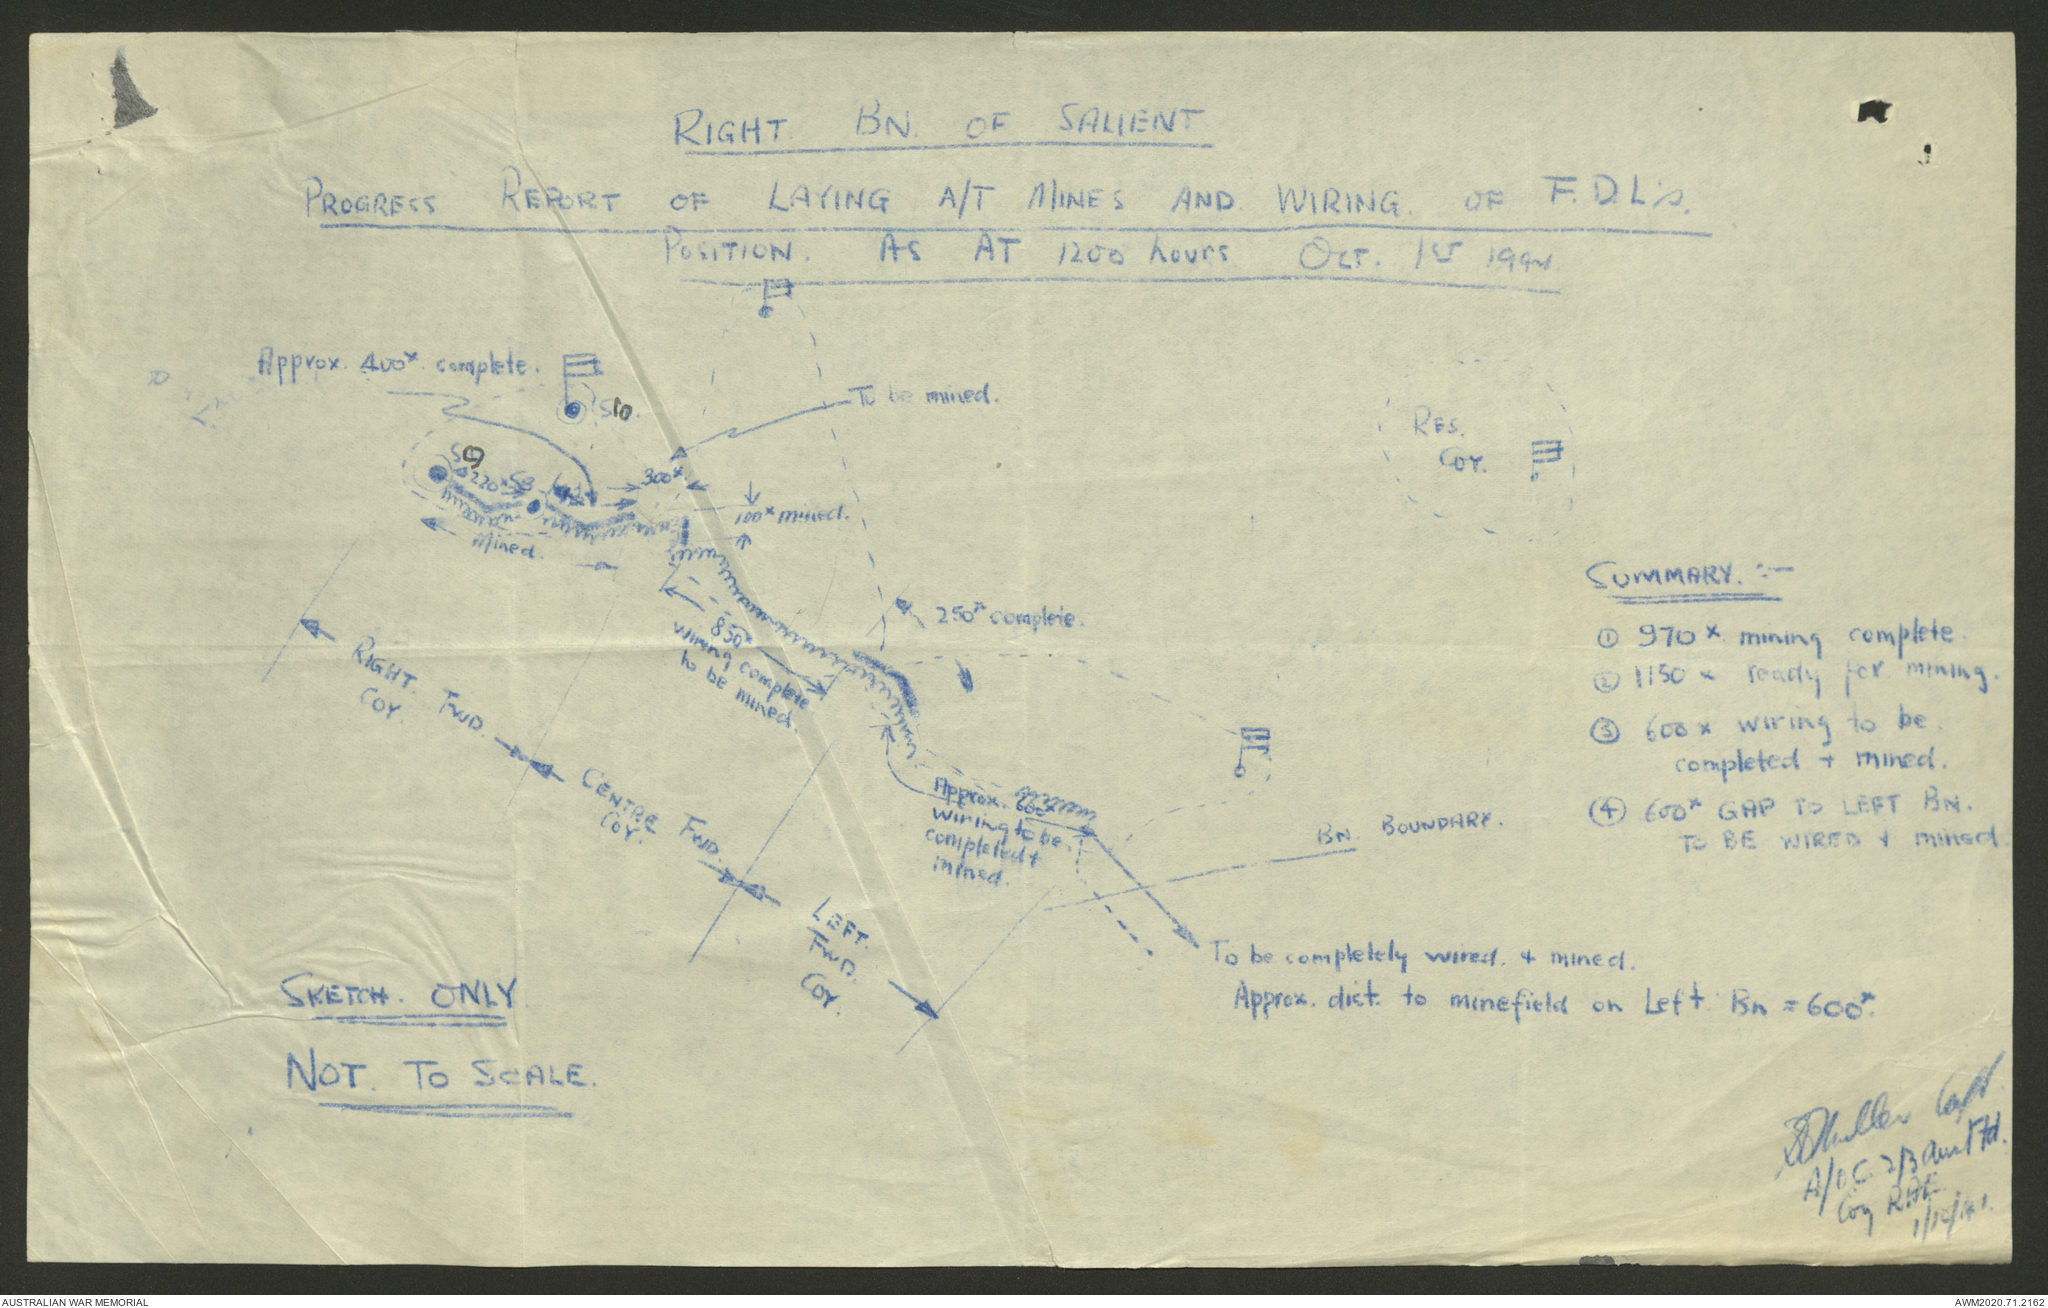 RIGHT BN. OF SALIENT
PROGRESS REPORT OF LAYING A/T MINES AND WIRING. OF F.D.L's.
POSITION. AS AT 1200 hours OCT. 1ST
Approx. 400x complete.
S10.
To be mined.
S9
220x
S8
300x
100x mined.
Mined.
RES.
COY.
250x complete.
850x
wiring complete
to be mined.
RIGHT. FWD.
COY.
CENTRE FWD.
COY.
LEFT.
FWD.
COY.
Approx. 600x
wiring to be
completed +
mined.
BN. BOUNDARY.
To be completely wired. + mined.
Approx. dist. to minefield on Left. Bn = 600x.
SUMMARY. :-
① 970x mining complete.
② 1150x ready for mining.
③ 600x wiring to be
completed + mined.
④ 600x GAP TO LEFT BN.
TO BE WIRED + mined.
SKETCH. ONLY.
NOT. TO SCALE.
Capt
A/O.C. 2/3 Aust Fd.
Coy RAE.
1/10/41.
AUSTRALIAN WAR MEMORIAL
AWM2020.71.2162